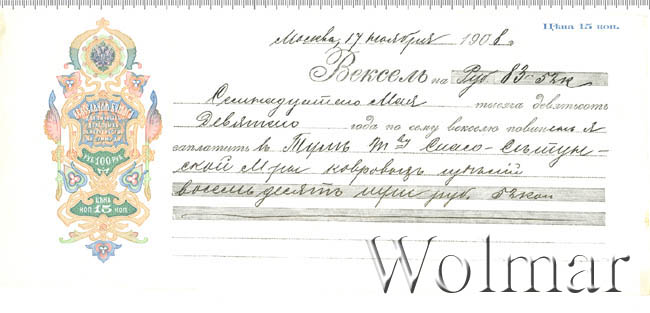 Цѣна 15 коп.
Москва, 17 ноября 1908 г.
Вексель на Руб 83-52к
Семнадцатаго Мая тысяча девятьсотъ
Девятаго года по сему векселю повиненъ я
заплатить въ
ской М-ры ковровыхъ
восемьдесятъ три руб. 52 коп
РУБ 100 РУБ
ЦѢНА
КОП 15 КОП
Wolmar